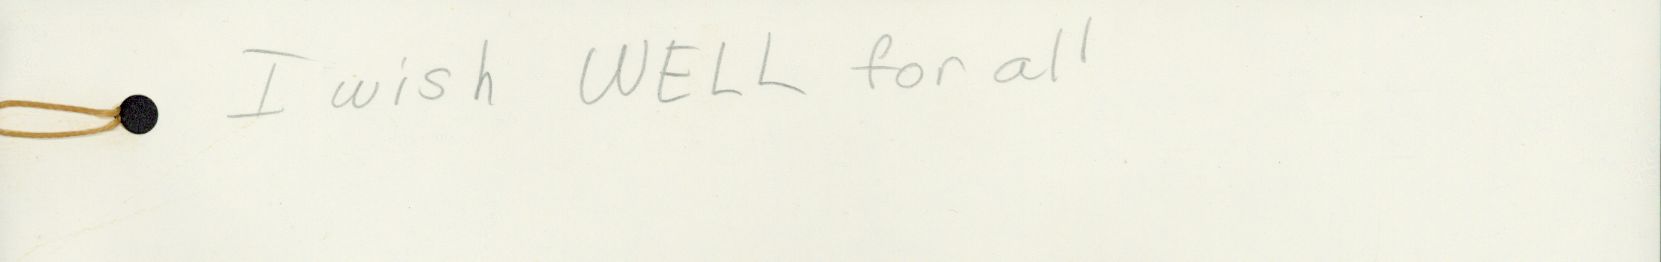 I wish WELL for all